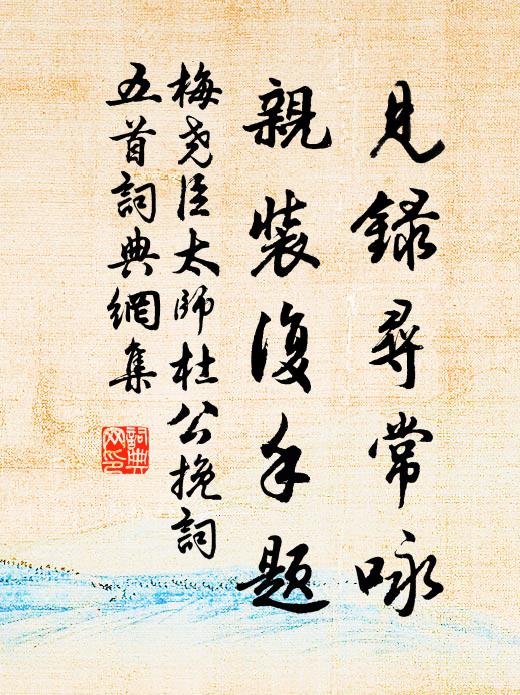 見錄尋常咏
親裝復手題
梅尧臣太師杜公挽詞
五首詞典網集
詞典
网印